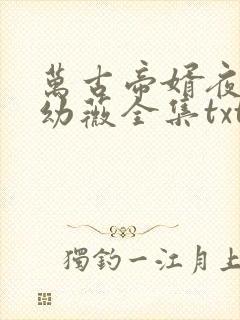 萬古帝婿夜
幼薇全集txt
獨釣一江月上